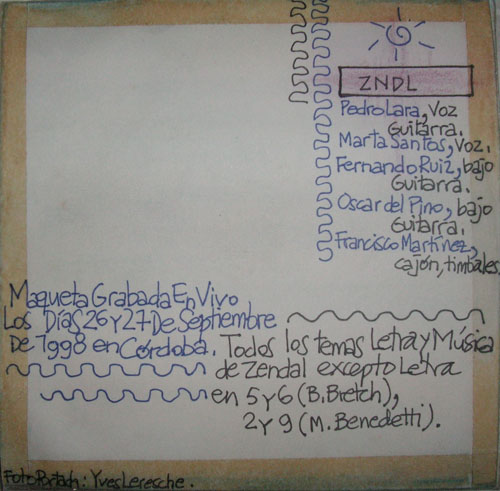 ZNDL
Pedro Lara, voz
Guitarra.
Marta Santos, voz.
Fernando Ruiz, bajo
Guitarra.
Oscar del Pino, bajo
Guitarra.
Francisco Martínez,
cajón, timbales
Maqueta Grabada En Vivo
Los Días 26 y 27 De Septiembre
De 1998 en Córdoba. Todos los temas Letra y Música
de Zendal excepto Letra
en 5 y 6 (B. Bretch),
2 y 9 (M. Benedetti).
Foto Portada: Yves Leresche.